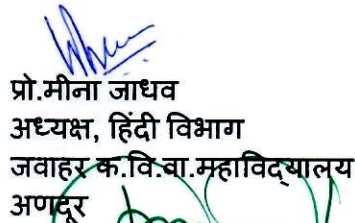 प्रो.मीना जाधव
अध्यक्ष, हिंदी विभाग
जवाहर क.वि.वा.महाविद्यालय
अणदूर